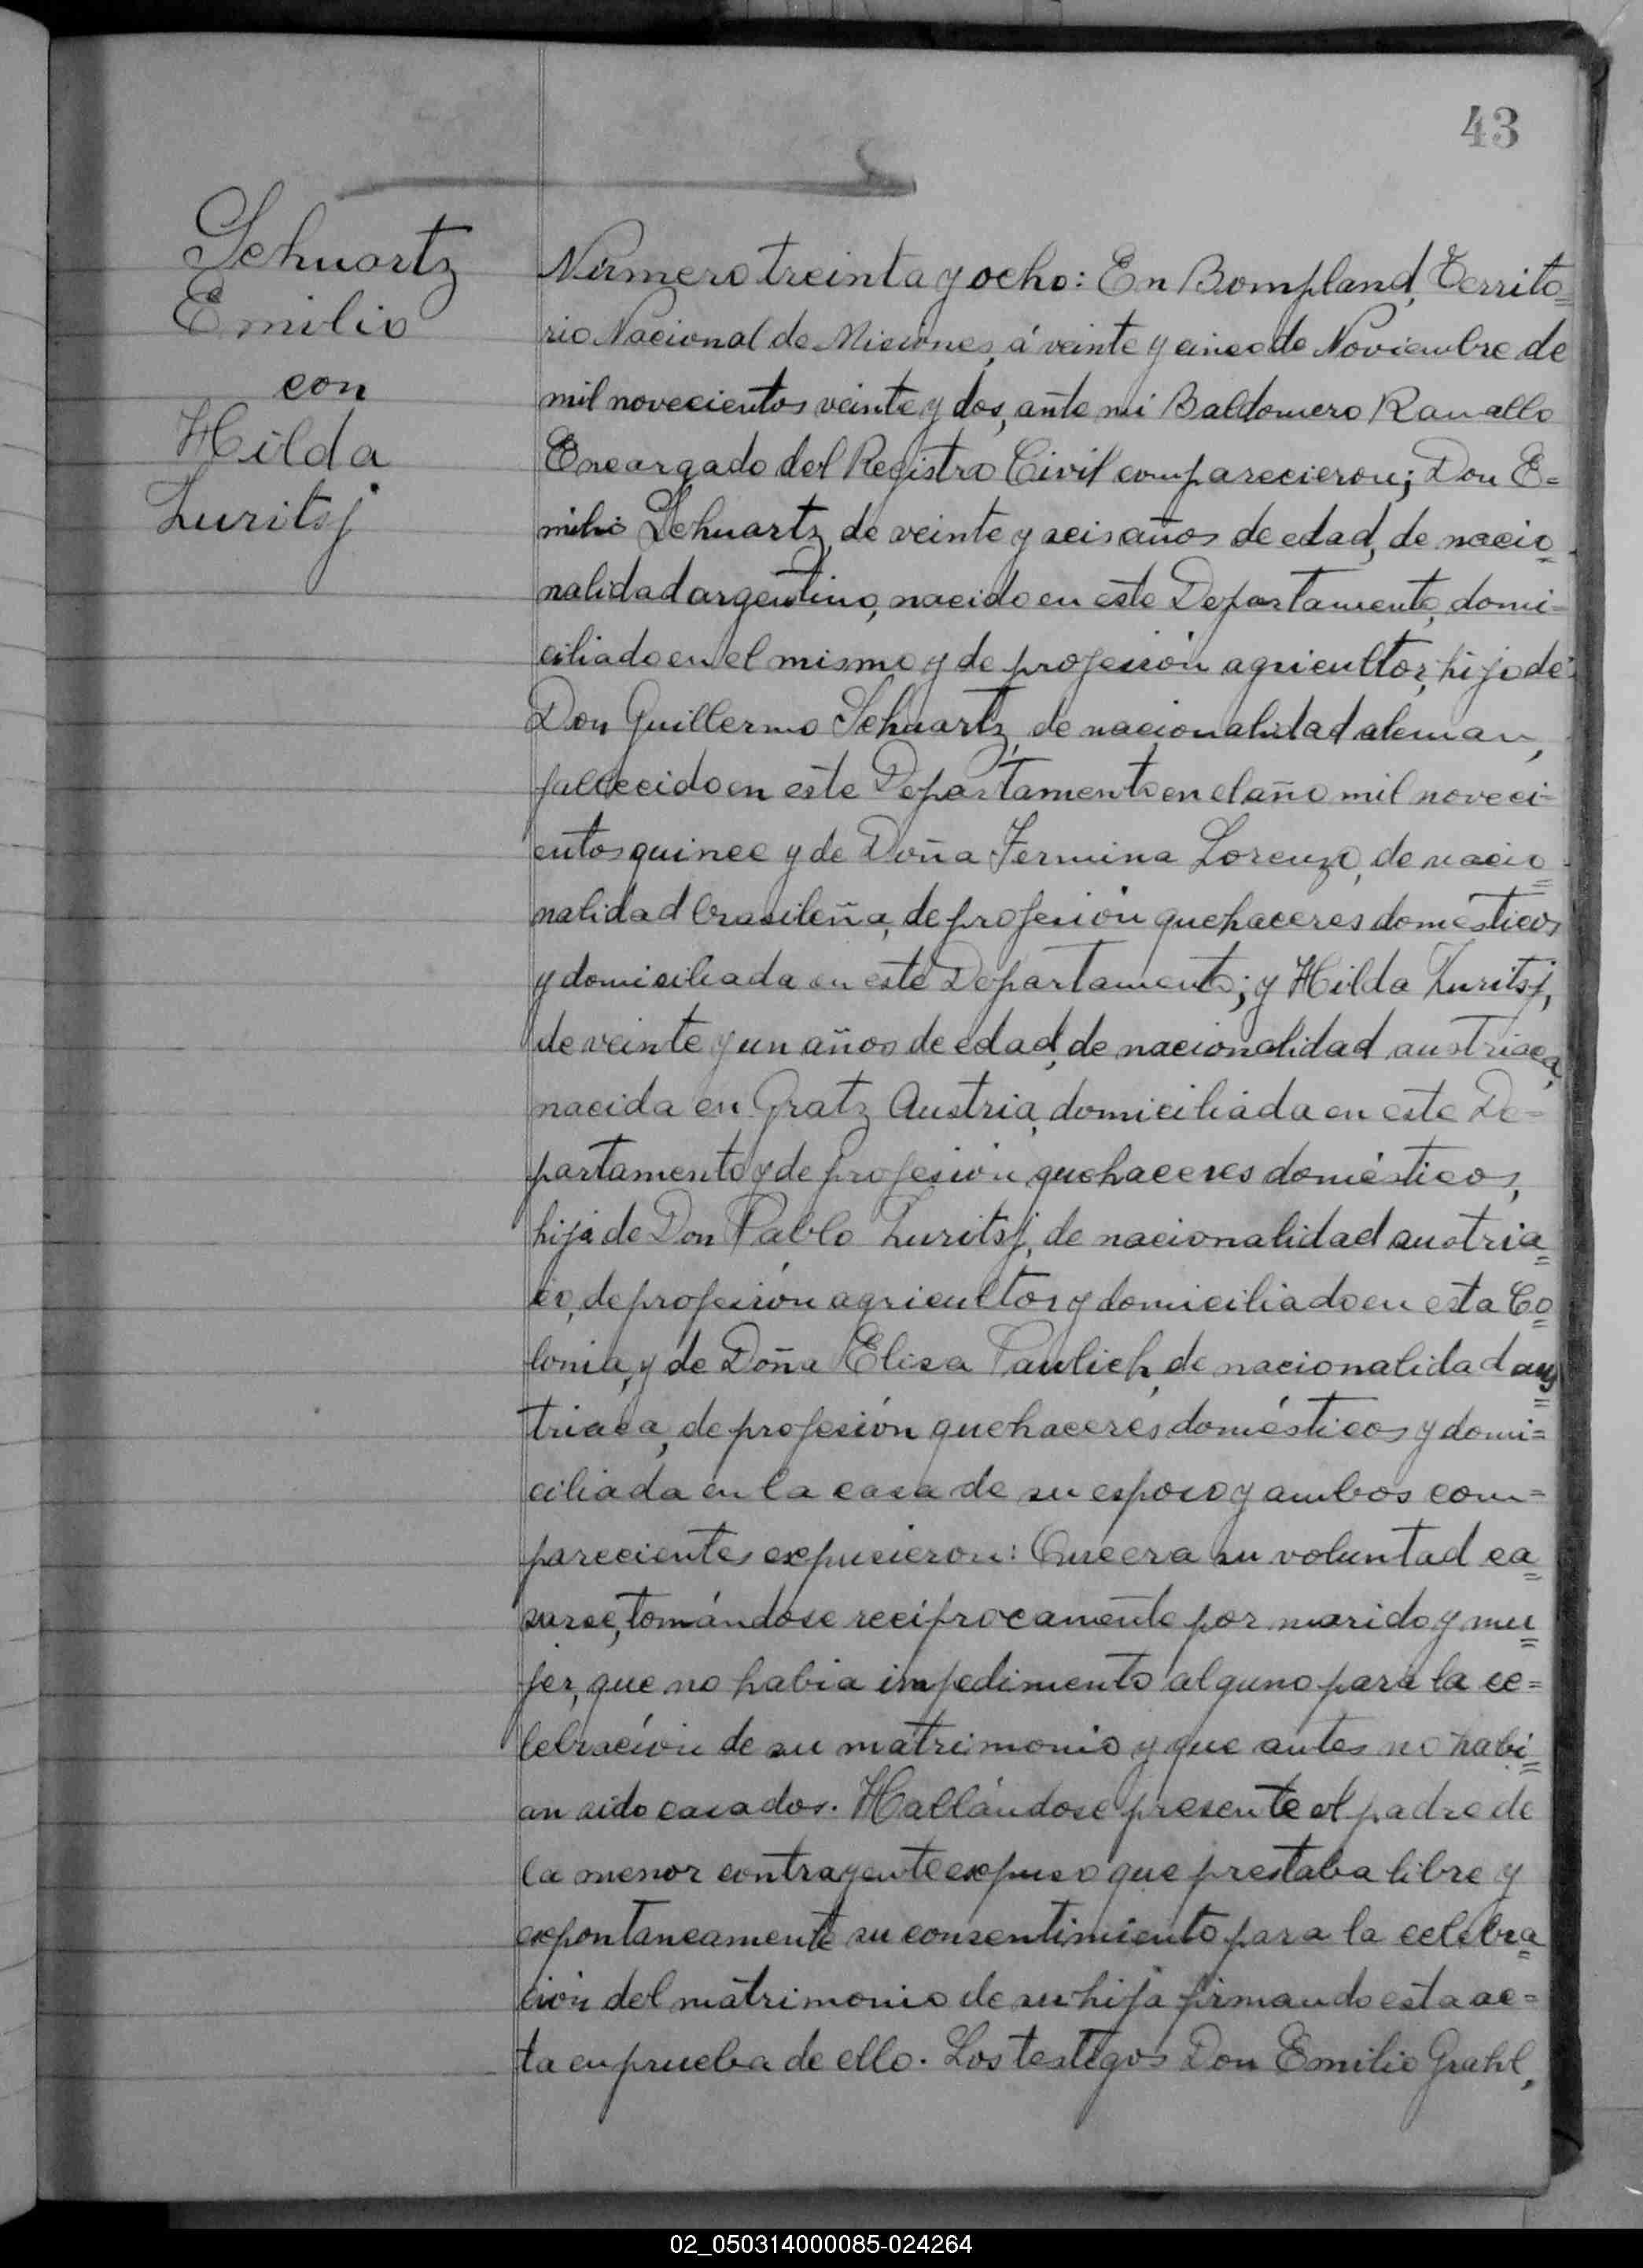 43
Schuartz
Emilio
con
Hilda
Luritsj
Número treinta y ocho: En Bompland, Territo=
rio Nacional de Misiones, á veinte y cinco de Noviembre de
mil novecientos veinte y dos, ante mi Baldomero Ravallo
Encargado del Registro Civil comparecieron; Don E=
milio Schuartz, de veinte y seis años de edad, de nacio=
nalidad argentino, nacido en este Departamento, domi=
ciliado en el mismo y de profesión agricultor, hijo de
Don Guillermo Schuartz, de nacionalidad aleman,
fallecido en este Departamento en el año mil noveci=
entos quince y de Doña Fermina Lorenzo, de nacio=
nalidad brasileña, de profesión quehaceres domésticos
y domiciliada en este Departamento; y Hilda Luritsj,
de veinte y un años de edad, de nacionalidad austriaca,
nacida en Gratz Austria, domiciliada en este De=
partamento y de profesión quehaceres domésticos,
hija de Don Pablo Luritsj, de nacionalidad austria=
co, de profesión agricultor y domiciliado en esta Co=
lonia, y de Doña Elisa Paulich, de nacionalidad aus=
triaca, de profesión quehaceres domésticos y domi=
ciliada en la casa de su esposo y ambos com=
parecientes expusieron: Que era su voluntad ca=
sarse, tomándose recíprocamente por marido y mu=
jer, que no habia impedimento alguno para la ce=
lebración de su matrimonio y que antes no habi=
an sido casados. Hallándose presente el padre de
la menor contrayente expuso que prestaba libre y
expontaneamente su consentimiento para la celebra=
ción del matrimonio de su hija firmando esta ac=
ta en prueba de ello. Los testigos Don Emilio Grahl,
02_050314000085-024264